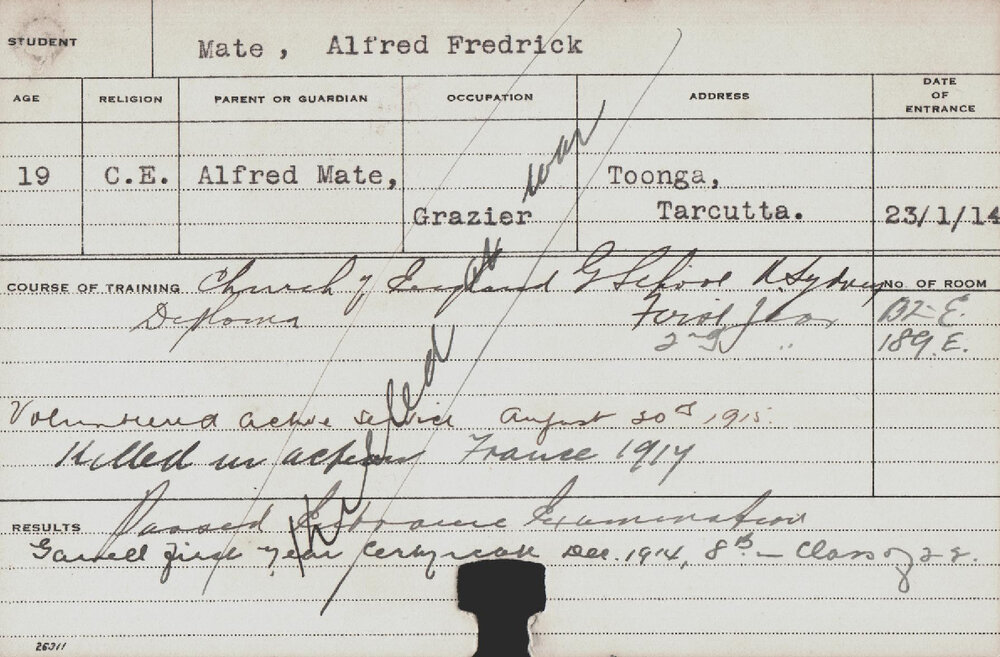 STUDENT Mate, Alfred Fredrick
AGE RELIGION PARENT OR GUARDIAN OCCUPATION ADDRESS DATE OF ENTRANCE
19 C.E. Alfred Mate, Toonga,
Grazier Tarcutta. 23/1/14
COURSE OF TRAINING Church of England G School N. Sydney No. OF ROOM
Diploma First Year E.
2nd " 189.E.
Volunteered active service August 1915.
Killed in action France 1917
Killed at war
RESULTS Passed Entrance Examination
Gained first year Certificate Dec. 1914, 8th – Class of
26311